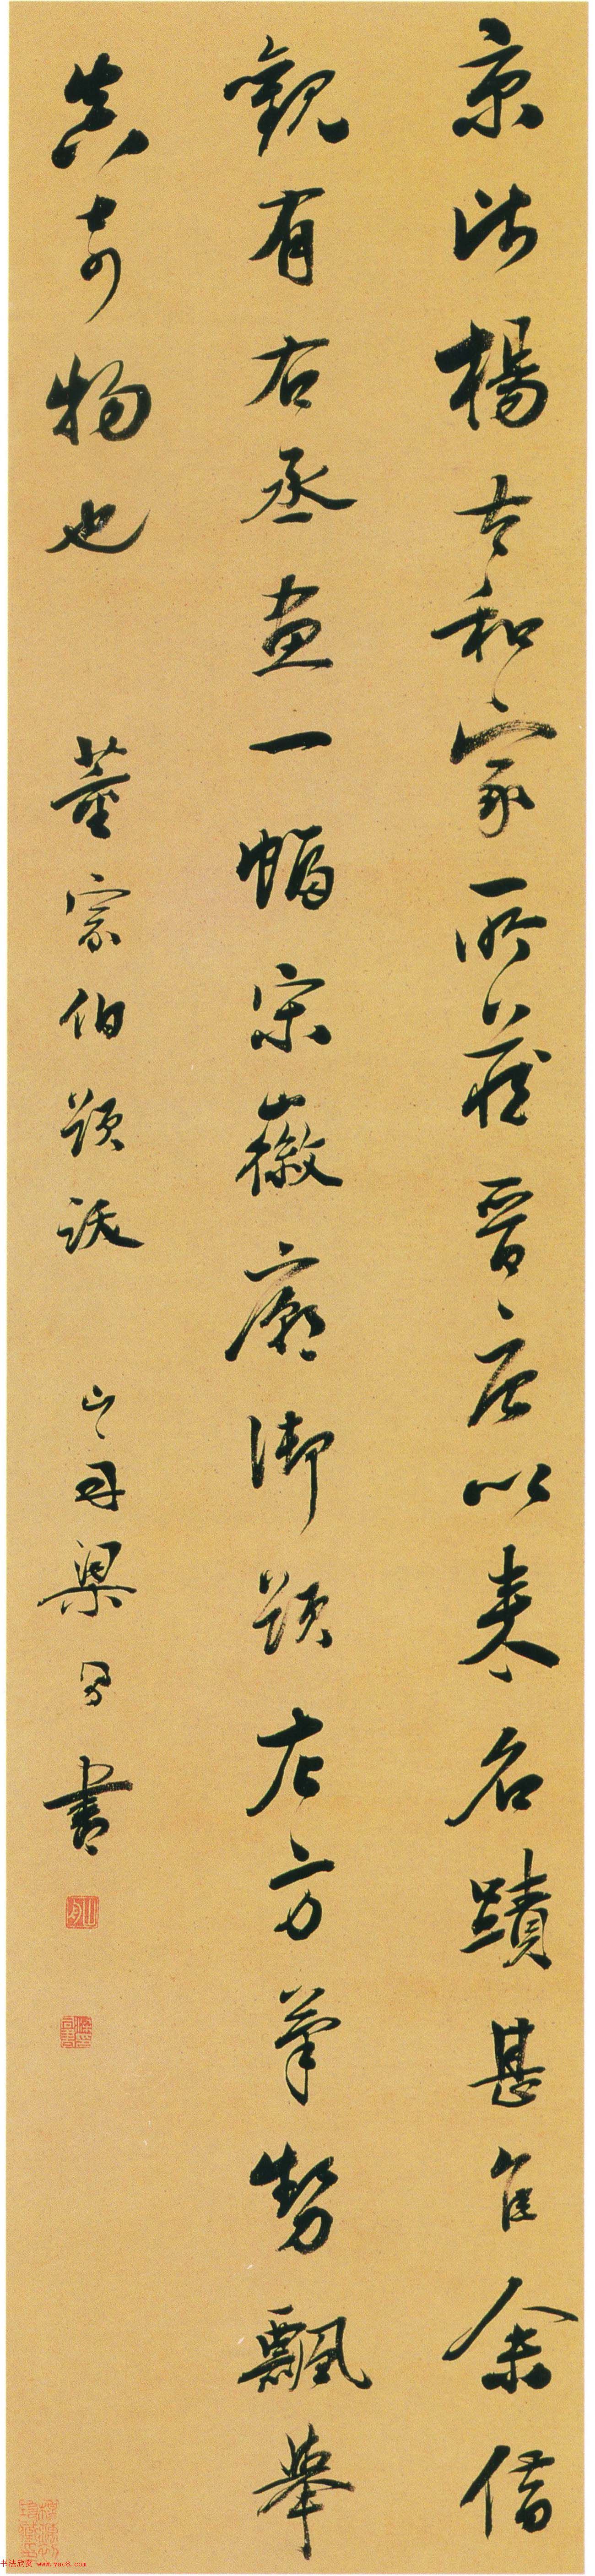 京ddd陛楊太和家所藏晉唐以來名蹟甚佳余借
觀有右丞畫一幅宋徽廟御題左方筆勢飄舉
真奇物也 董宗伯題跋 山舟梁同書
书法欣赏 www.yac8.com